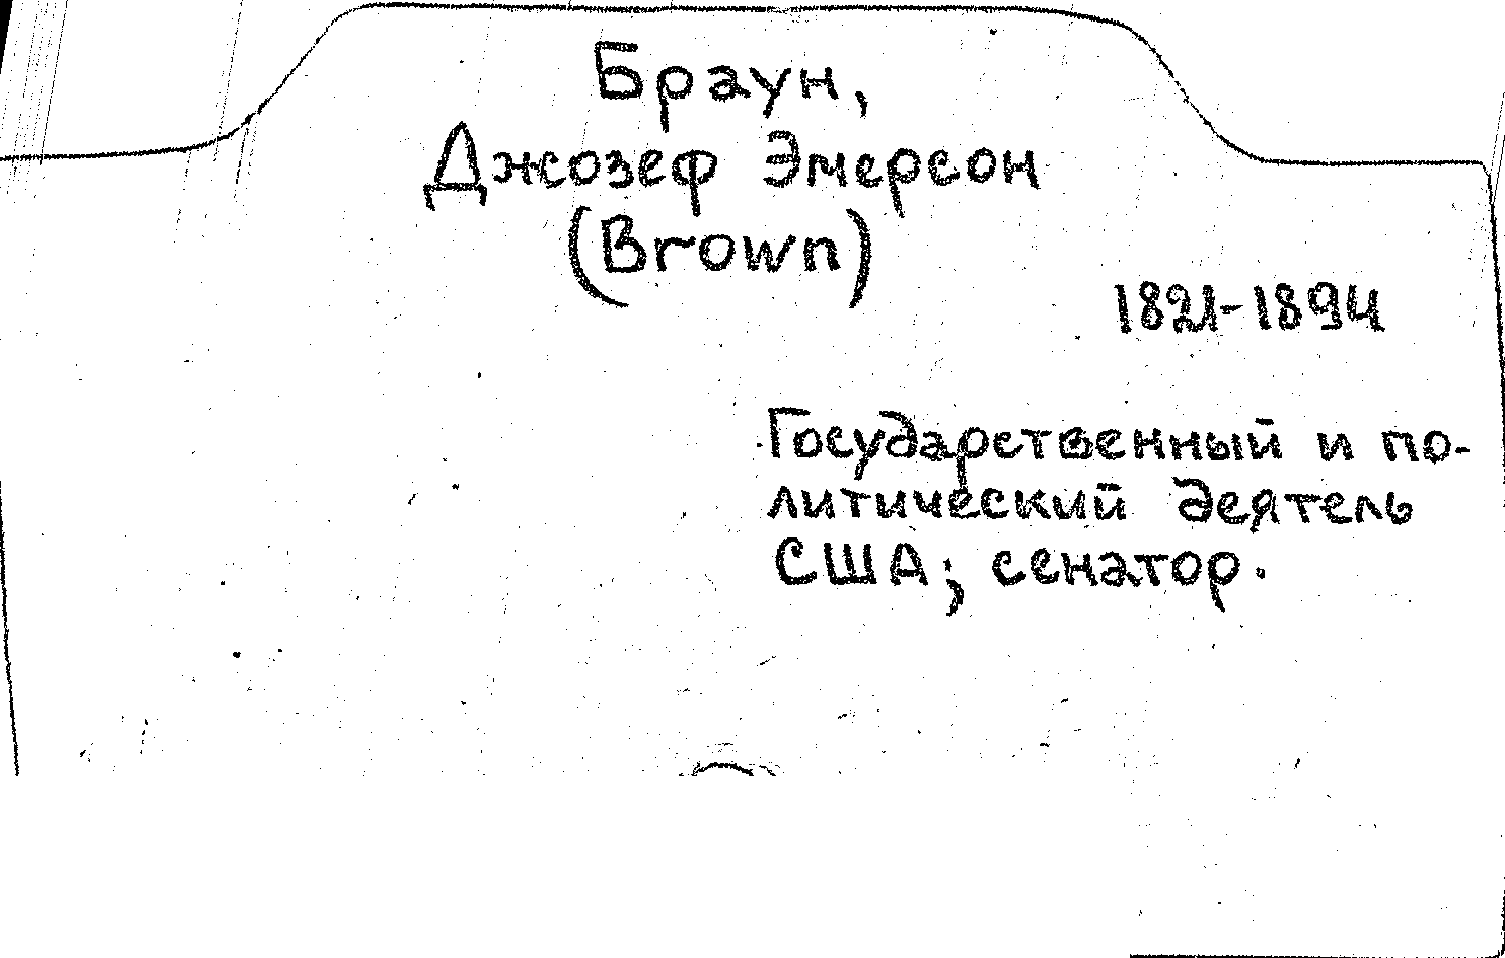 Браун,
Джозеф Эмерсон
(Brown)
1821-1894
Государственный и по-
литический деятель
США; сенатор.